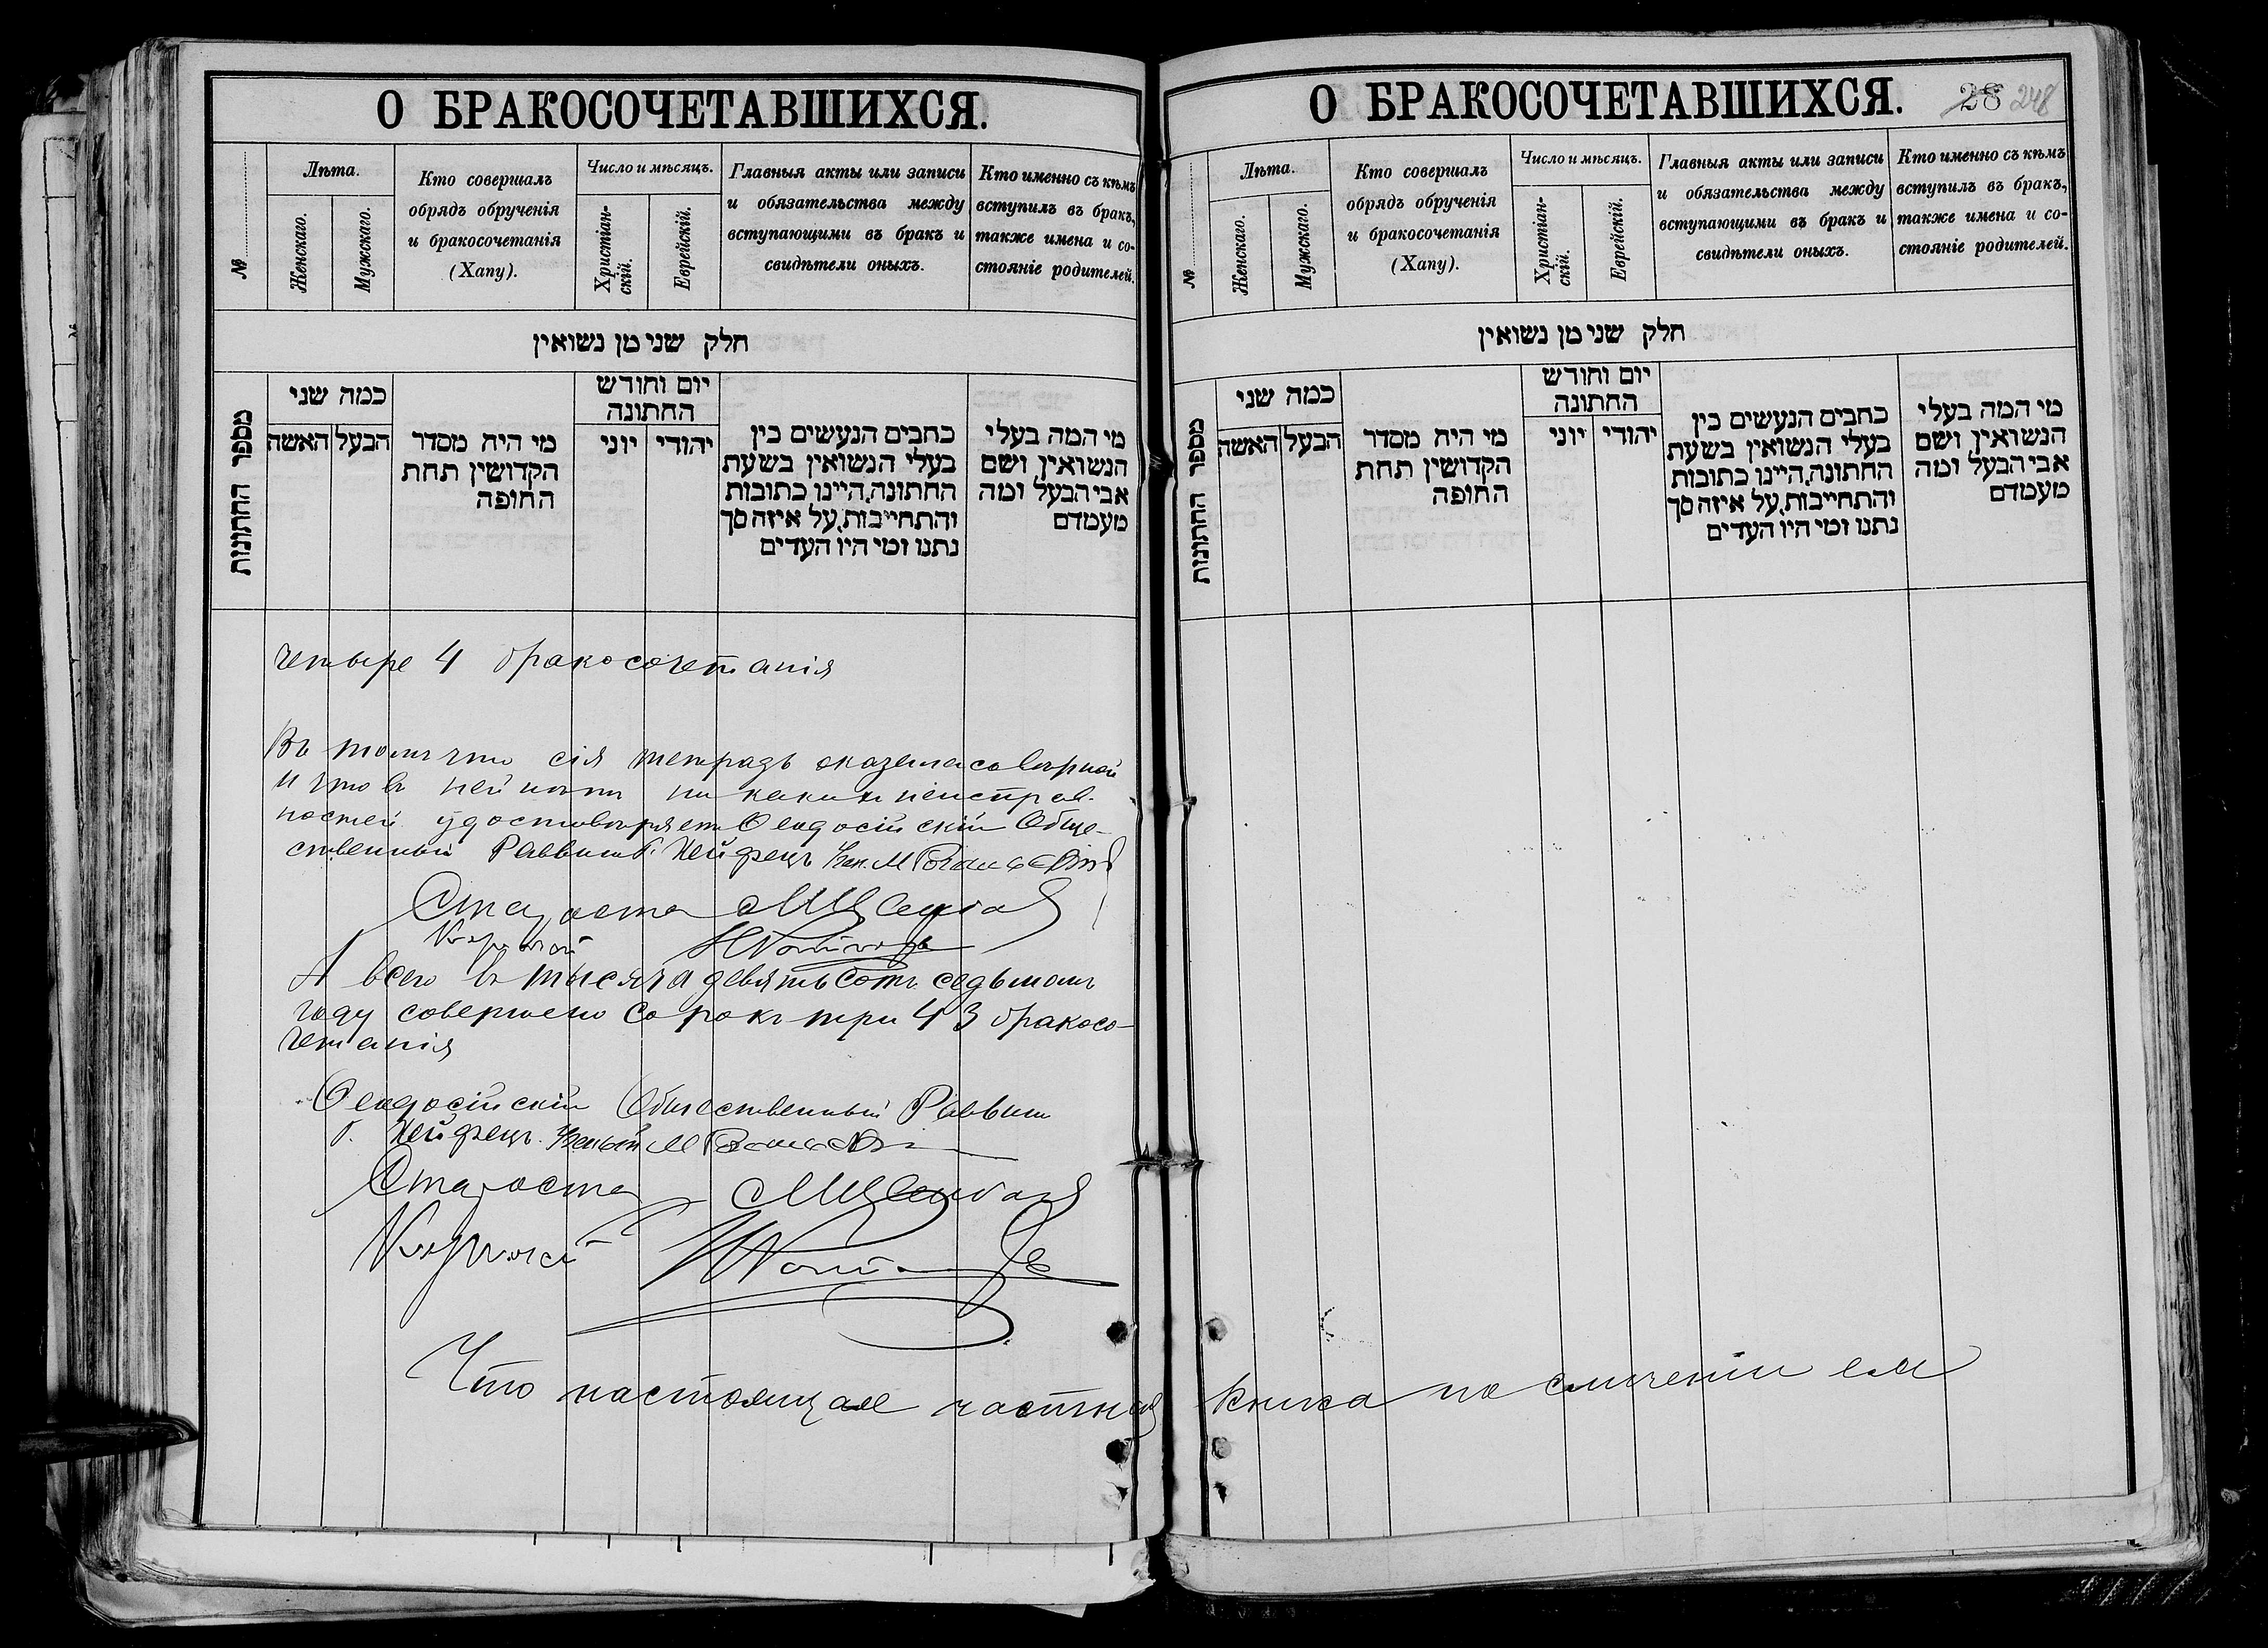 О БРАКОСОЧЕТАВШИХСЯ.
№
Лѣта.
Женскаго.
Мужскаго.
Кто совершалъ
обрядъ обрученія
и бракосочетанія
(Хапу).
Число и мѣсяцъ.
Христіан-
скій.
Еврейскій.
Главныя акты или записи
и обязательства между
вступающими въ бракъ и
свидѣтели оныхъ.
Кто именно съ кѣмъ
вступилъ въ бракъ,
также имена и со-
стояніе родителей.
חלק שני מן נשואין
מספר החתונות
כמה שני
האשה
הבעל
מי היה מסדר
הקדושין תחת
החופה
יום וחודש
החתונה
יוני
יהודי
כתבים הנעשים בין
בעלי הנשואין בשעת
החתונה, היינו כתובות
והתחייבות, על איזה סך
נתנו ומי היו העדים
מי המה בעלי
הנשואין ושם
אבי הבעל ומה
מעמדם
четыре 4 бракосочетанія
Въ томъ что сія тетрадь оказалась вѣрной
и что въ ней нѣтъ никакихъ неисправ-
ностей удостовѣряетъ Ѳеодосійскій Обще-
ственный Раввинъ Б. Хейфецъ
Староста
А всего въ тысяча девятьсотъ седьмомъ
году совершено сорокъ три 43 бракосо-
четанія
Ѳеодосійскій Общественный Раввинъ
Б. Хейфецъ.
Староста
Что настоящая частная
О БРАКОСОЧЕТАВШИХСЯ.
28 248
№
Лѣта.
Женскаго.
Мужскаго.
Кто совершалъ
обрядъ обрученія
и бракосочетанія
(Хапу).
Число и мѣсяцъ.
Христіан-
скій.
Еврейскій.
Главныя акты или записи
и обязательства между
вступающими въ бракъ и
свидѣтели оныхъ.
Кто именно съ кѣмъ
вступилъ въ бракъ,
также имена и со-
стояніе родителей.
חלק שני מן נשואין
מספר החתונות
כמה שני
האשה
הבעל
מי היה מסדר
הקדושין תחת
החופה
יום וחודש
החתונה
יוני
יהודי
כתבים הנעשים בין
בעלי הנשואין בשעת
החתונה, היינו כתובות
והתחייבות, על איזה סך
נתנו ומי היו העדים
מי המה בעלי
הנשואין ושם
אבי הבעל ומה
מעמדם
книга по сличеніи ея